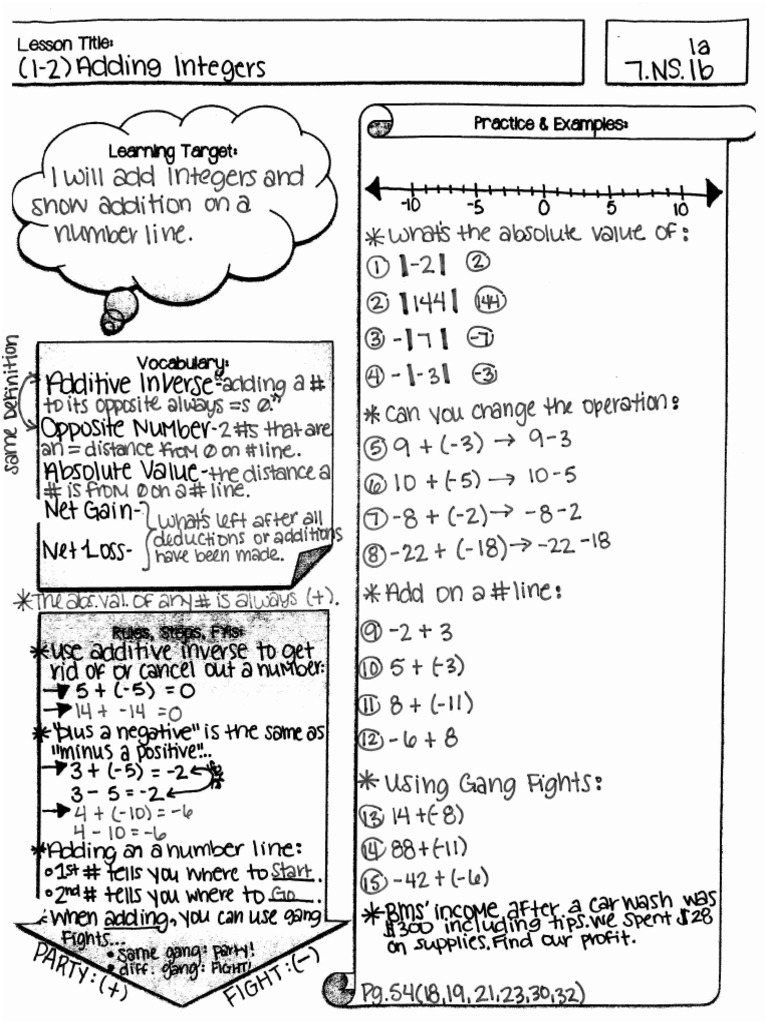 Lesson Title:
(1-2) Adding Integers
1a
7.NS.1b
Learning Target:
I will add Integers and
show addition on a
number line.
same definition
Vocabulary:
Additive Inverse-"adding a #
to its opposite always =s 0."
Opposite Number-2 #s that are
an = distance from 0 on # line.
Absolute Value-the distance a
# is from 0 on a # line.
Net Gain-
Net Loss-
What's left after all
deductions or additions
have been made.
*The abs. val. of any # is always (+).
Rules, Steps, FYIs:
*use additive inverse to get
rid of or cancel out a number:
→ 5 + (-5) = 0
→ 14 + -14 = 0
*"plus a negative" is the same as
"minus a positive"...
→ 3 + (-5) = -2
3 - 5 = -2
→ 4 + (-10) = -6
4 - 10 = -6
*Adding an a number line:
• 1st # tells you where to Start.
• 2nd # tells you where to Go.
* When adding, you can use gang
Fights...
• same gang: Party!
• diff. gang: FIGHT!
PARTY: (+)
FIGHT: (-)
Practice & Examples:
-10 -5 0 5 10
*What's the absolute value of:
① |-2| ②
② |144| 144
③ -|7| -7
④ -|-3| -3
*Can you change the operation:
⑤ 9 + (-3) → 9-3
⑥ 10 + (-5) → 10-5
⑦ -8 + (-2) → -8-2
⑧ -22 + (-18) → -22-18
*Add on a # line:
⑨ -2 + 3
⑩ 5 + (-3)
⑪ 8 + (-11)
⑫ -6 + 8
*Using Gang Fights:
⑬ 14 + (-8)
⑭ 88 + (-11)
⑮ -42 + (-6)
*BMS' income after a car wash was
$300 including tips. We spent $28
on supplies. Find our profit.
Pg. 54 (18, 19, 21, 23, 30, 32)